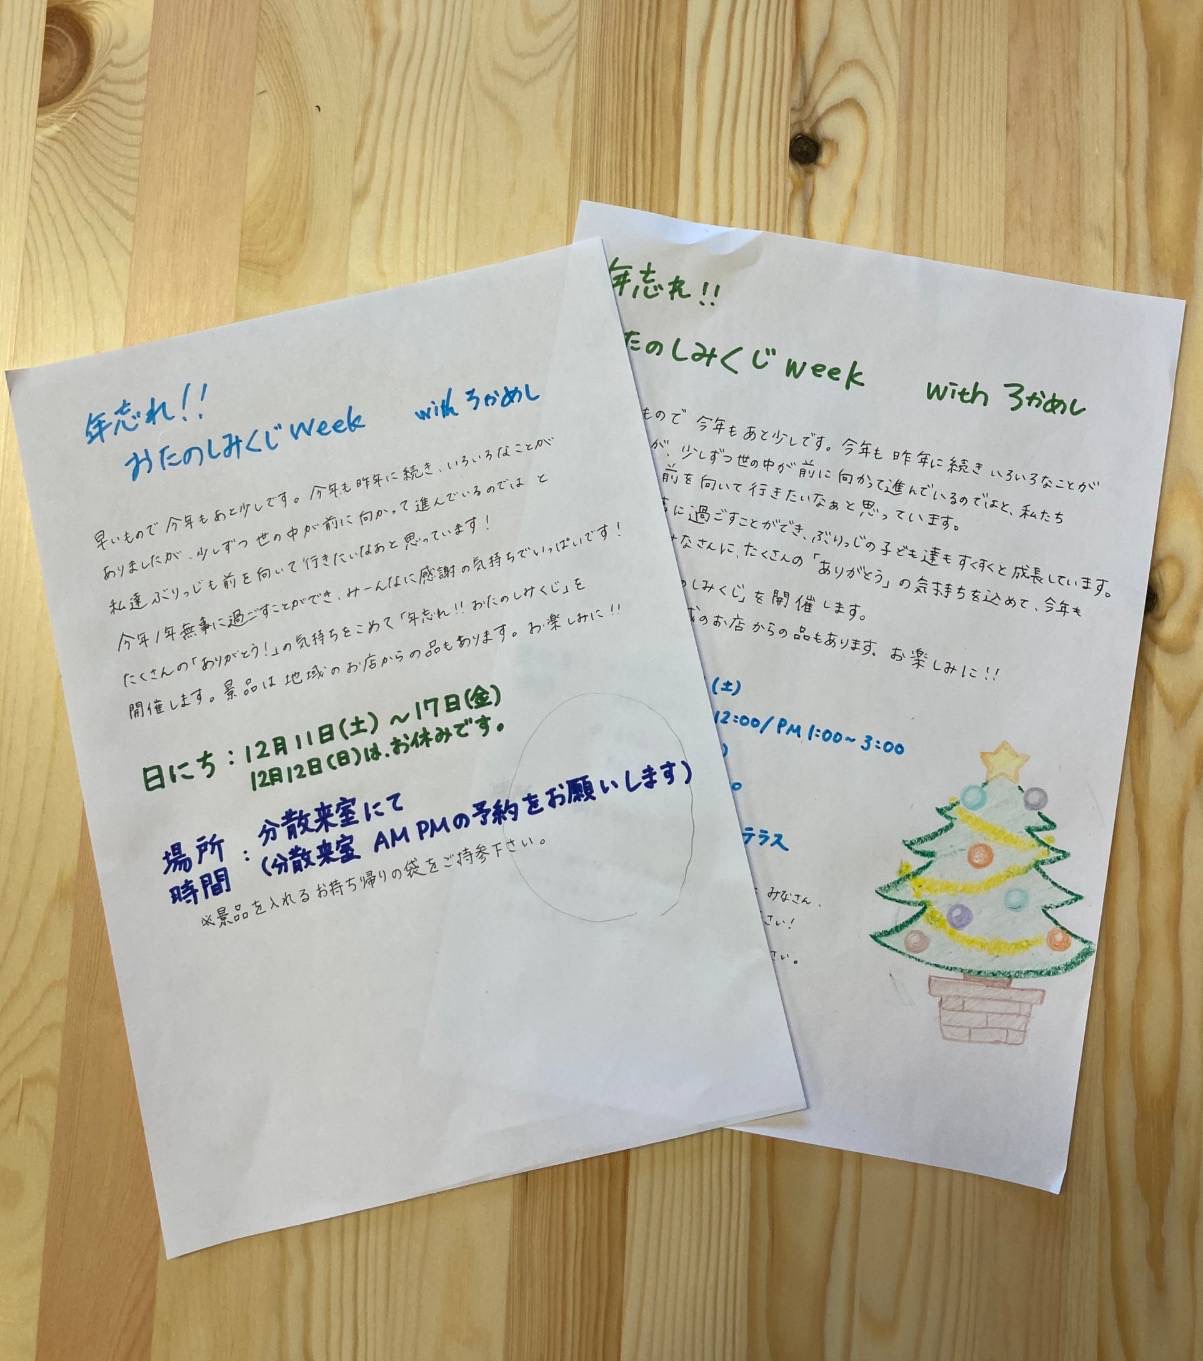 年忘れ!!
おたのしみくじweek with ろかめし
早いもので今年もあと少しです。今年も昨年に続き、いろいろなことが
ありましたが、少しずつ世の中が前に向かって進んでいるのではと
私達ぶりっじも前を向いて行きたいなあと思っています!
今年1年無事に過ごすことができ、みーんなに感謝の気持ちでいっぱいです!
たくさんの「ありがとう!」の気持ちをこめて「年忘れ!!おたのしみくじ」を
開催します。景品は地域のお店からの品もあります。お楽しみに!!
日にち:12月11日(土)~17日(金)
12月12日(日)は、お休みです。
場所:分散来室にて
時間 (分散来室 AM PMの予約をお願いします)
※景品を入れるお持ち帰りの袋をご持参下さい。
年忘れ!!
たのしみくじweek with ろかめし
もので 今年もあと少しです。今年も昨年に続きいろいろなことが
が、少しずつ世の中が前に向かって進んでいるのではと、私たち
前を向いて行きたいなぁと思っています。
に過ごすことができ、ぶりっじの子ども達もすくすくと成長しています。
みなさんに、たくさんの「ありがとう」の気持ちを込めて、今年も
のしみくじ」を開催します。
のお店からの品もあります。お楽しみに!!
(土)
12:00/PM 1:00~3:00
)
。
テラス
みなさん、
さい!
さい。